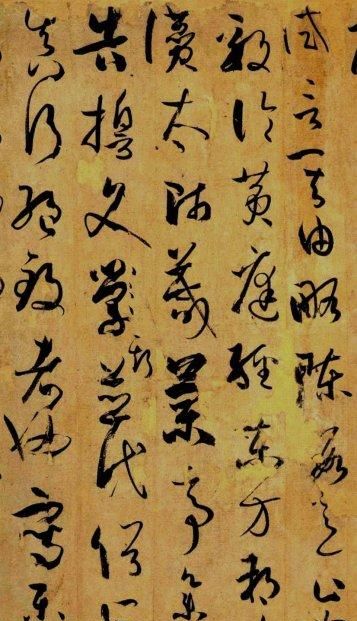 試言其由略陳數意止
毅論黃庭經東方朔
讚太師箴蘭亭集
告誓文斯並代俗所
真行絕致者也寫樂